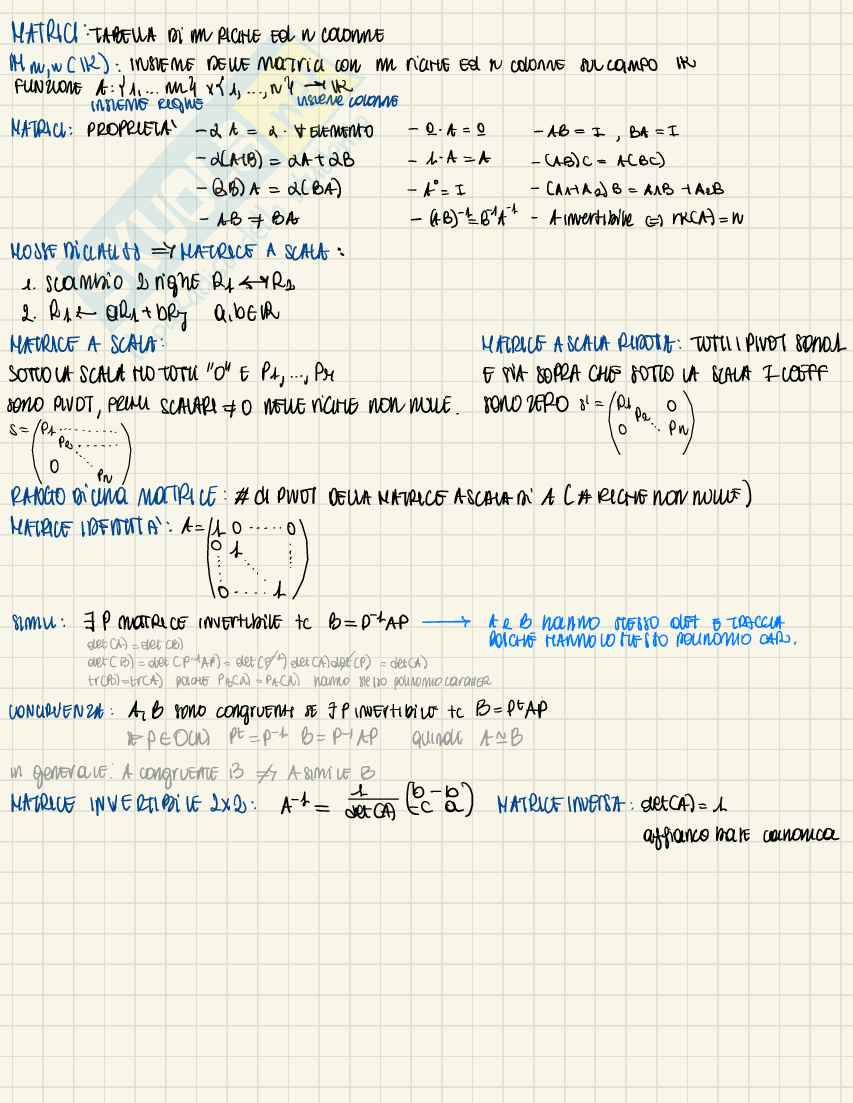 MATRICI: TABELLA DI m RIGHE ED n COLONNE
M m,n (IK): INSIEME DELLE MATRICI CON m RIGHE ED n COLONNE SUL CAMPO IK
FUNZIONE A: {1,... m} x {1,...,n} → IK
INSIEME RIGHE INSIEME COLONNE
MATRICI: PROPRIETA' - αA = α · ∀ ELEMENTO - 0 · A = 0 - AB = I , BA = I
- α(A+B) = αA + αB - 1 · A = A - (AB)C = A(BC)
- (αB)A = α(BA) - A° = I - (A1+A2)B = A1B + A2B
- AB ≠ BA - (AB)⁻¹ = B⁻¹A⁻¹ - A invertibile ⇔ rk(A) = n
MOSSE DI GAUSS ⇒ MATRICE A SCALA:
1. SCAMBIO 2 RIGHE R1 ↔ R2
2. R1 ← aR1 + bRj a,b ∈ IR
MATRICE A SCALA:
SOTTO LA SCALA HO TUTTI "0" E P1, ..., Pr
SONO PIVOT, PRIMI SCALARI ≠ 0 NELLE RIGHE NON NULLE.
S = (P1 ........ P2 ...... 0 Pn)
MATRICE A SCALA RIDOTTA: TUTTI I PIVOT SONO 1
E SIA SOPRA CHE SOTTO LA SCALA I COEFF
SONO ZERO S' = (P1 0 P2 0 ... Pn)
RANGO DI UNA MATRICE: # di PIVOT DELLA MATRICE A SCALA DI A (# RIGHE NON NULLE)
MATRICE IDENTITA': A = (1 0 ..... 0 0 1 0 ..... 1)
SIMILI: ∃ P MATRICE INVERTIBILE tc B = P⁻¹AP → A e B HANNO STESSO DET E TRACCIA
POICHÉ HANNO LO STESSO POLINOMIO CAR.
det(A) = det(B)
det(B) = det(P⁻¹AP) = det(P⁻¹) det(A) det(P) = det(A)
tr(B) = tr(A) poiché PB(λ) = PA(λ) hanno stesso polinomio caratter
CONGRUENZA: A, B SONO CONGRUENTI SE ∃ P INVERTIBILE tc B = PᵗAP
se P ∈ O(n) Pᵗ = P⁻¹ B = P⁻¹AP quindi A ≃ B
in generale: A congruente B ⇏ A simile B
MATRICE INVERTIBILE 2x2: A⁻¹ = 1/det(A) (b -b -c a) MATRICE INVERSA: det(A) = 1
affianco base canonica